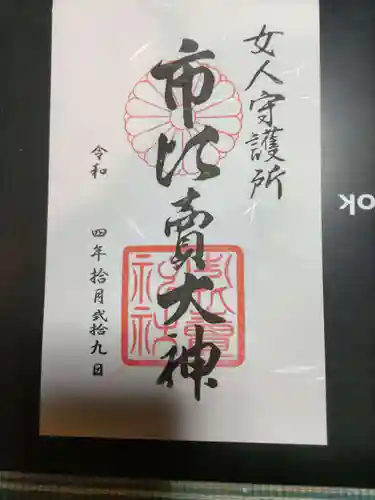 女人守護所
市比賣大神
令和 四年拾月弐拾九日
ok